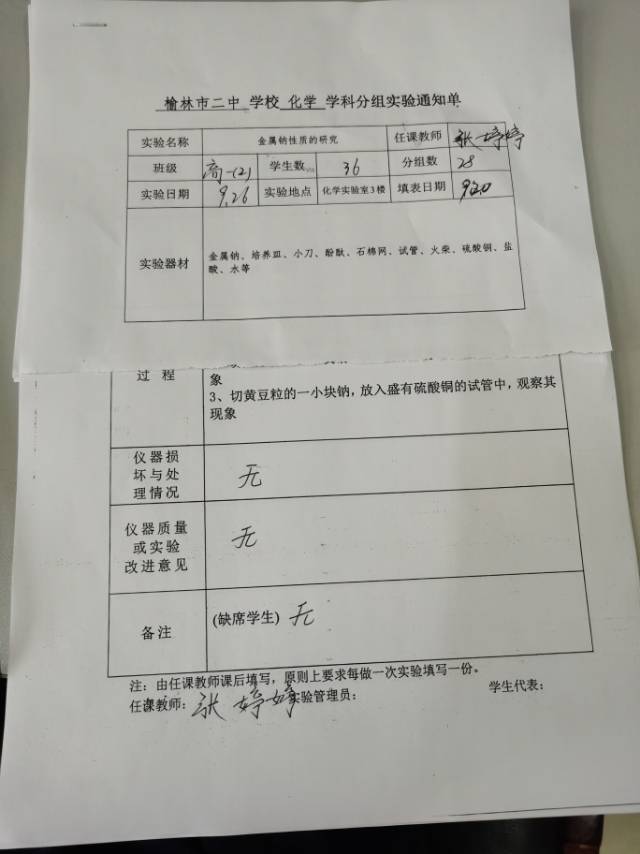 榆林市二中 学校 化学 学科分组实验通知单
实验名称 金属钠性质的研究 任课教师 张婷婷
班级 高一(2) 学生数 36 分组数 28
实验日期 9.26 实验地点 化学实验室3楼 填表日期 9.20
实验器材 金属钠、培养皿、小刀、酚酞、石棉网、试管、火柴、硫酸铜、盐
酸、水等
过 程 象
3、切黄豆粒的一小块钠，放入盛有硫酸铜的试管中，观察其
现象
仪器损
坏与处
理情况 无
仪器质量
或实验
改进意见 无
备注 (缺席学生) 无
注：由任课教师课后填写，原则上要求每做一次实验填写一份。
任课教师：张婷婷 实验管理员： 学生代表：